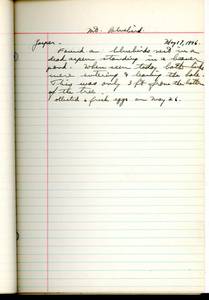 Mt. Bluebird.
Jasper - May 17, 1946.
Found a bluebirds nest in a
dead aspen standing in a beaver
pond. When seen today both birds
were entering & leaving the hole.
This was only 3 ft from the bottom
of the tree.
Collected fresh eggs on May 26.